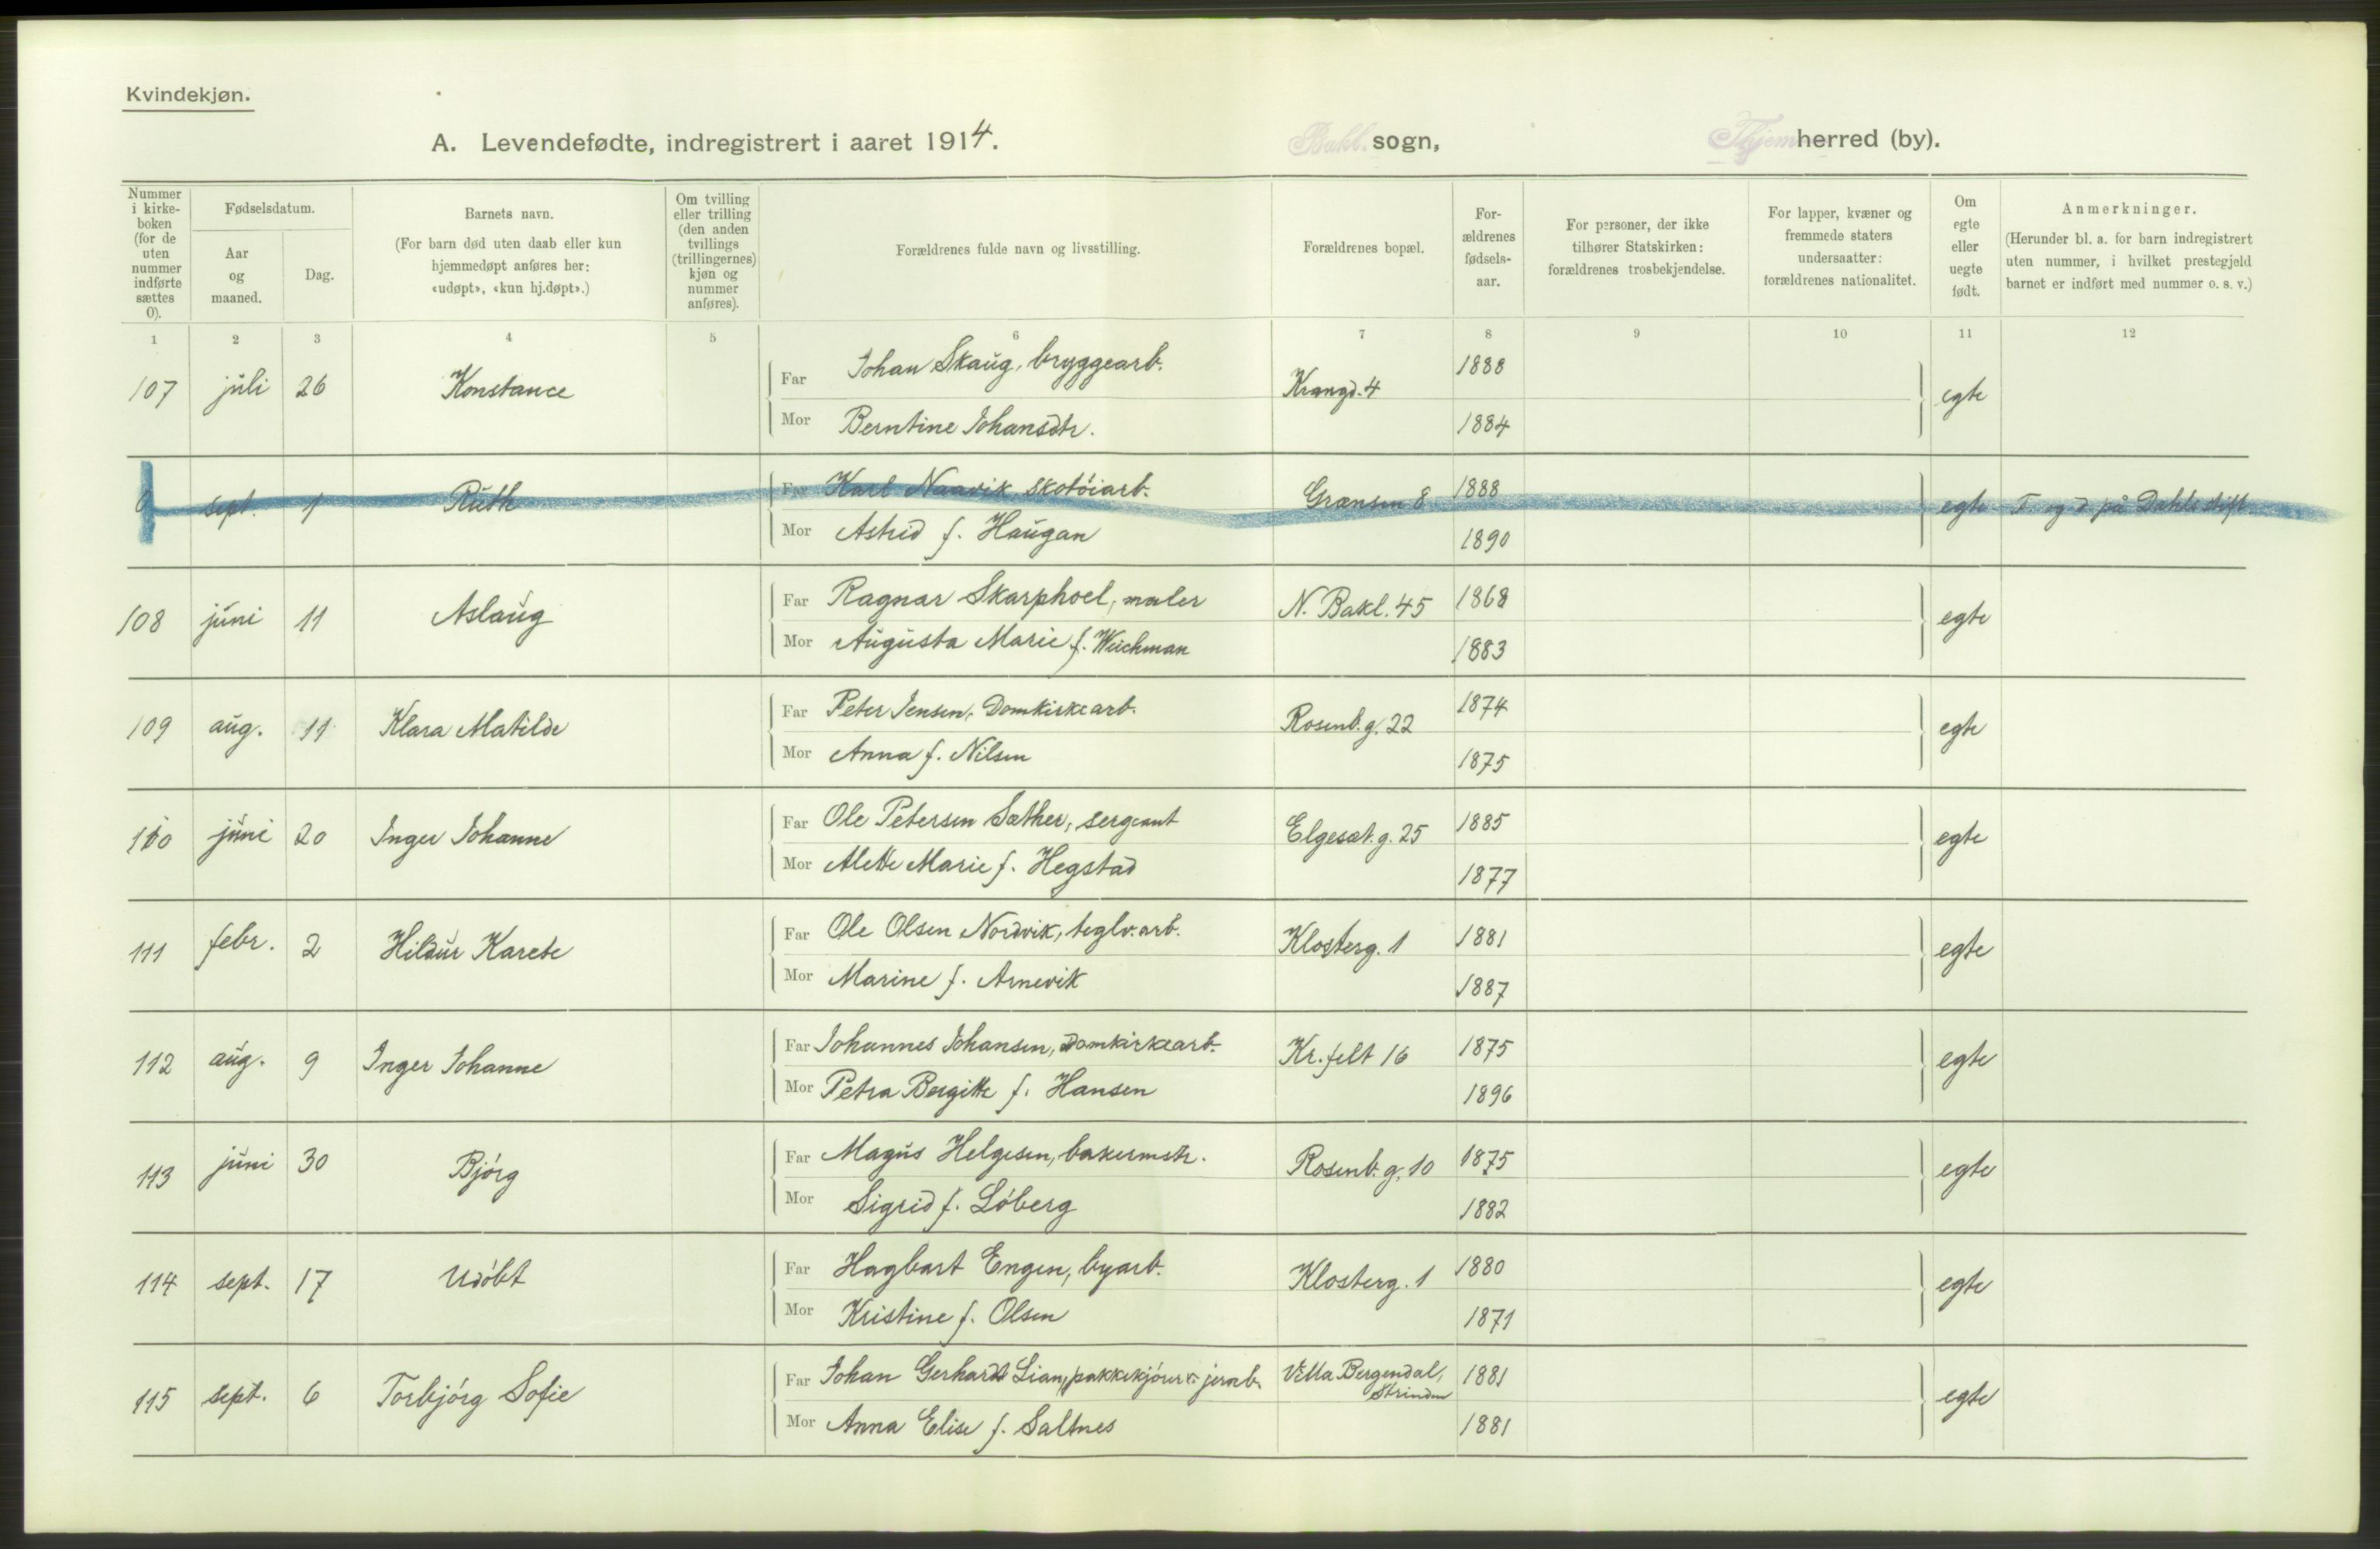 Kvindekjøn.
A. Levendefødte, indregistrert i aaret 1914. Bakl. sogn, Thjem herred (by).
Nummer i kirke-boken (for de uten nummer indførte sættes 0).
Fødselsdatum.
Aar og maaned.
Dag.
Barnets navn.
(For barn død uten daab eller kun hjemmedøpt anføres her: «udøpt», «kun hj.døpt».)
Om tvilling eller trilling (den anden tvillings (trillingernes) kjøn og nummer anføres).
Forældrenes fulde navn og livsstilling.
Forældrenes bopæl.
For-ældrenes fødsels-aar.
For personer, der ikke tilhører Statskirken: forældrenes trosbekjendelse.
For lapper, kvæner og fremmede staters undersaatter: forældrenes nationalitet.
Om egte eller uegte født.
Anmerkninger.
(Herunder bl. a. for barn indregistrert uten nummer, i hvilket prestegjeld barnet er indført med nummer o. s. v.)
1 2 3 4 5 6 7 8 9 10 11 12
107 juli 26 Konstance Far Johan Skaug, bryggearb. Krangd. 4 1888 egte
Mor Berntine Johansdtr. 1884
0 sept. 1 Ruth Far Karl Naavik skotöiarb. Grænsen 8 1888 egte F. og d. på Dahls stift.
Mor Astrid f. Haugan 1890
108 juni 11 Aslaug Far Ragnar Skarphoel, maler N. Bakl. 45 1868 egte
Mor Augusta Marie f. Weichman 1883
109 aug. 11 Klara Matilde Far Peter Jensen, Domkirkearb. Rosenb. g. 22 1874 egte
Mor Anna f. Nilsen 1875
110 juni 20 Inger Johanne Far Ole Petersen Sæther, sergeant Elgesæt. g. 25 1885 egte
Mor Alette Marie f. Hegstad 1877
111 febr. 2 Hildur Karete Far Ole Olsen Nordvik, teglv.arb. Klosterg. 1 1881 egte
Mor Marine f. Arnevik 1887
112 aug. 9 Inger Johanne Far Johannes Johansen, Domkirkearb. Kr. felt 16 1875 egte
Mor Petra Bergitte f. Hansen 1896
113 juni 30 Bjórg Far Magus Helgesen, bakermstr. Rosenb. g. 10 1875 egte
Mor Sigrid f. Lóberg 1882
114 sept. 17 Udóbt Far Hagbart Engen, byarb. Klosterg. 1 1880 egte
Mor Kristine f. Olsen 1871
115 sept. 6 Torbjórg Sofie Far Johan Gerhard Lian, pakkekjórer jernb. Villa Bergendal, 1881 egte
Strinden
Mor Anna Elise f. Saltnes 1881